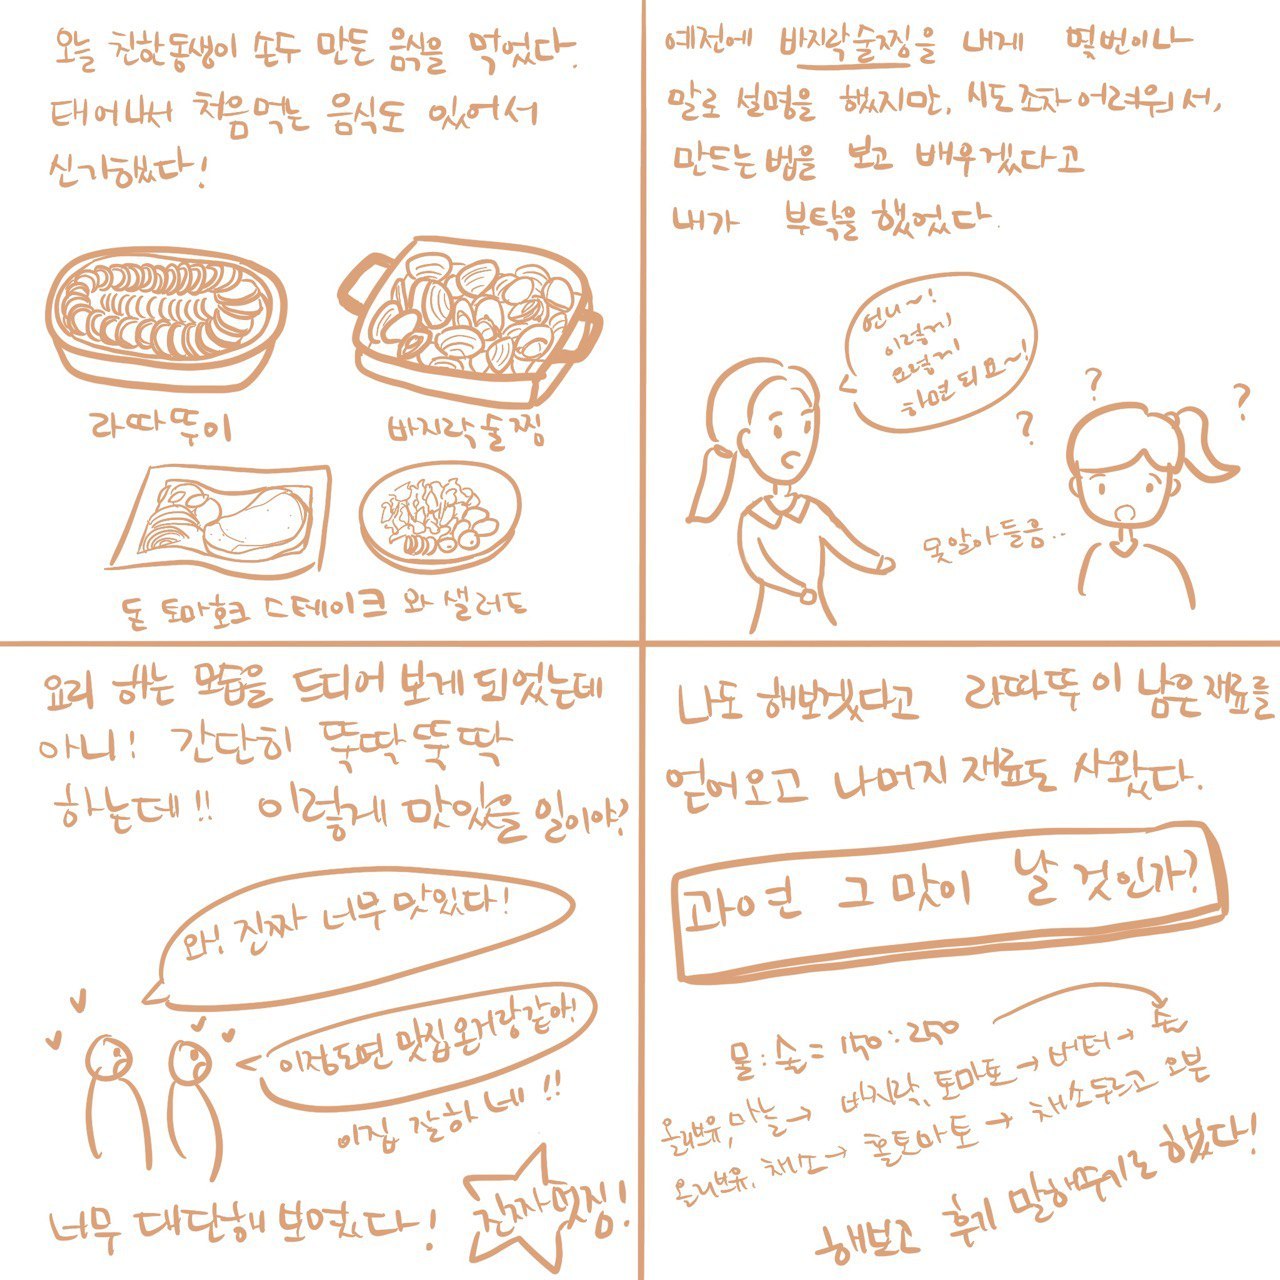 오늘 친한동생이 손두 만든 음식을 먹었다.
태어나서 처음먹는 음식도 있어서
신기했다!
라따뚜이
바지락술찜
돈 토마호크 스테이크 와 샐러드
예전에 바지락술찜을 내게 몇번이나
말로 설명을 했지만, 시도조차어려워서,
만드는법을 보고 배우겠다고
내가 부탁을 했었다.
언니~!
이렇게
요렇게
하면되요~!
?
?
?
못알아들음..
요리 하는 모습을 드디어 보게 되었는데
아니! 간단히 뚝딱뚝딱
하는데!! 이렇게 맛있을 일이야?
와! 진짜 너무 맛있다!
이정도면 맛집온거랑같아!
이집 잘하네!!
너무 대단해 보였다!
진짜멋정!
나도 해보겠다고 라따뚜이 남은재료를
얻어오고 나머지 재료도 사왔다.
과연 그 맛이 날 것인가?
물:술= 150:250
올리브유,마늘→ 바지락,토마토→버터→ 술
올리브유, 채소→ 홀토마토→ 채소두르고 오븐
해보고 후기 말해주기로 했다!